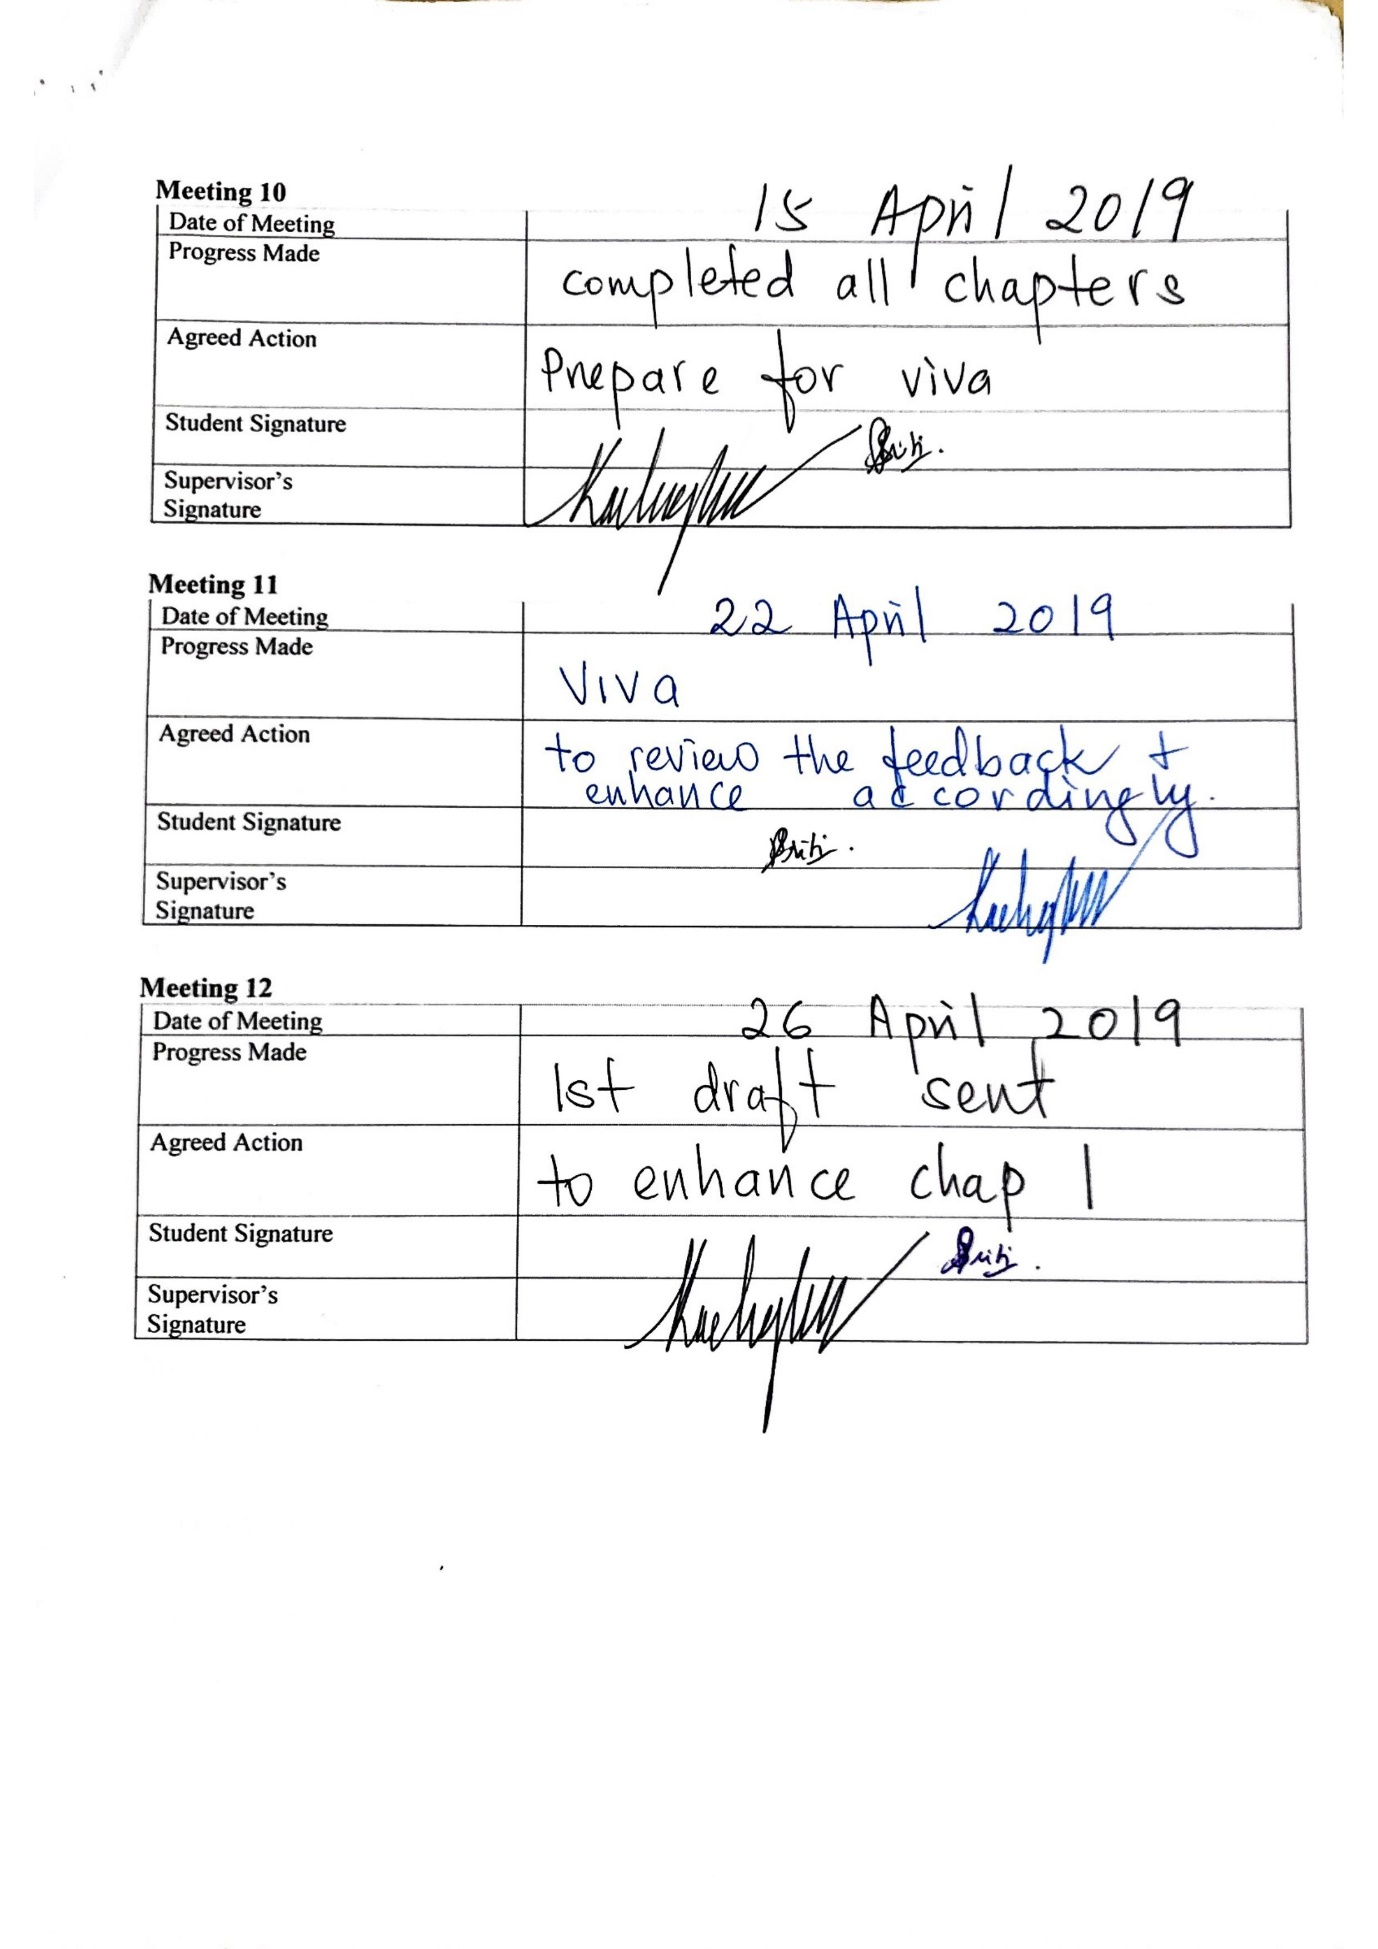 Meeting 10
Date of Meeting 15 April 2019
Progress Made completed all chapters
Agreed Action Prepare for viva
Student Signature
Supervisor's
Signature
Meeting 11
Date of Meeting 22 April 2019
Progress Made
Viva
Agreed Action to review the feedback +
enhance accordingly.
Student Signature
Supervisor's
Signature
Meeting 12
Date of Meeting 26 April 2019
Progress Made 1st draft sent
Agreed Action to enhance chap 1
Student Signature
Supervisor's
Signature